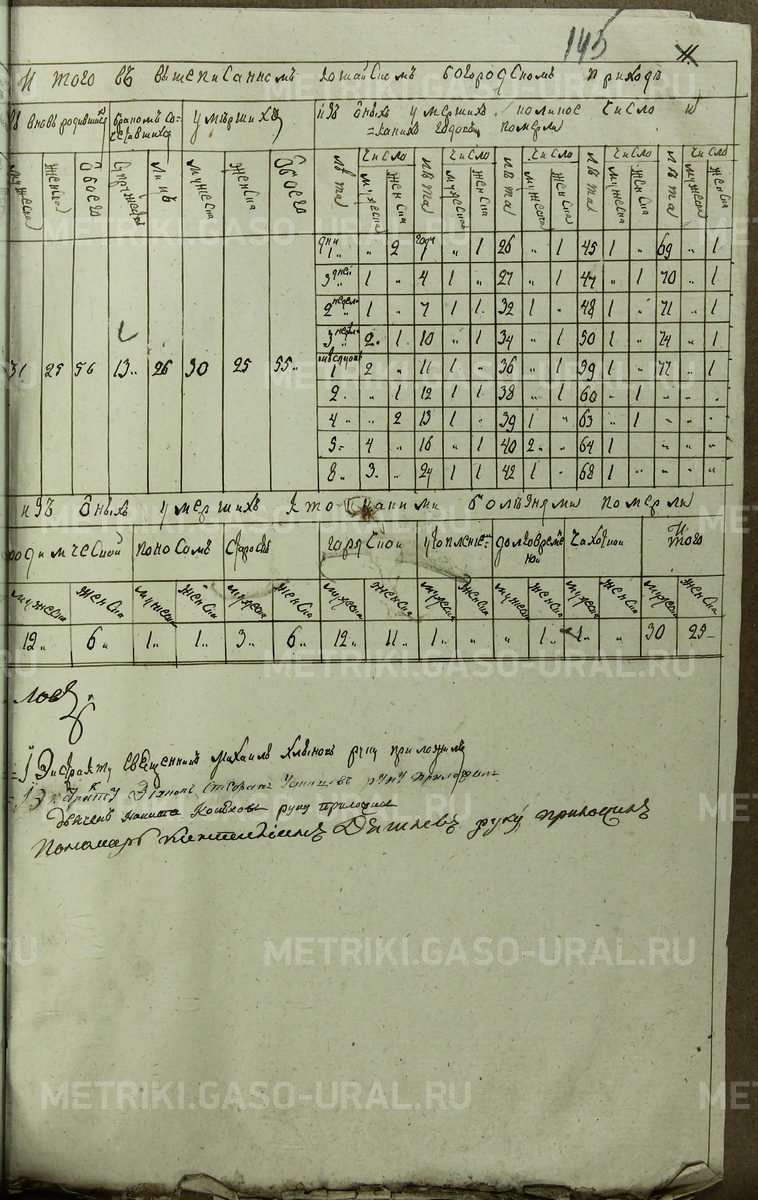 145
11
И того въ вышеписанномъ богородскомъ приходѣ
вновь родившихся
бракомъ со-
четавшихся
умѣршихъ
изъ оныхъ умершихъ полное число и
какихъ годовъ померли
мужеска женска обоего супружествъ лицъ мужеска женска обоего лѣта число лѣта число лѣта число лѣта число лѣта число
мужеска женска мужеска женска мужеска женска мужеска женска мужеска женска
дни 1 „ 2 годъ 1 „ 1 26 „ 1 45 1 „ 69 „ 1
3 дней 1 „ 4 1 „ 27 „ 1 47 „ 1 70 „ 1
2 недели 1 „ 7 1 1 32 1 „ 48 1 „ 71 „ 1
3 недели 2 1 10 „ 1 34 „ 1 50 1 „ 74 „ 1
31 25 56 13 26 30 25 55 1 2 „ 11 1 „ 36 „ 1 59 1 „ 77 „ 1
2 „ 1 12 1 1 38 „ 1 60 „ 1 „ „ „
4 „ 2 13 1 „ 39 1 „ 63 „ 1 „ „ „
5 4 „ 16 „ 1 40 2 „ 64 1 „ „ „
8 3 „ 24 1 1 42 1 „ 68 1 „ „ „
изъ оныхъ умершихъ кто какими болѣзнями померли
родимческой поносомъ старостью горячкой утопленіемъ долговремѣн-
ной чахоткой Итого
мужеска женска мужеска женска мужеска женска мужеска женска мужеска женска мужеска женска мужеска женска мужеска женска
12 6 1 1 3 6 12 11 1 „ „ 1 1 „ 30 25
ловъ
священникъ Михаилъ руку приложилъ
руку приложилъ
Дьячекъ Никита руку приложилъ
Пономарь руку приложилъ
METRIKI.GASO-URAL.RU